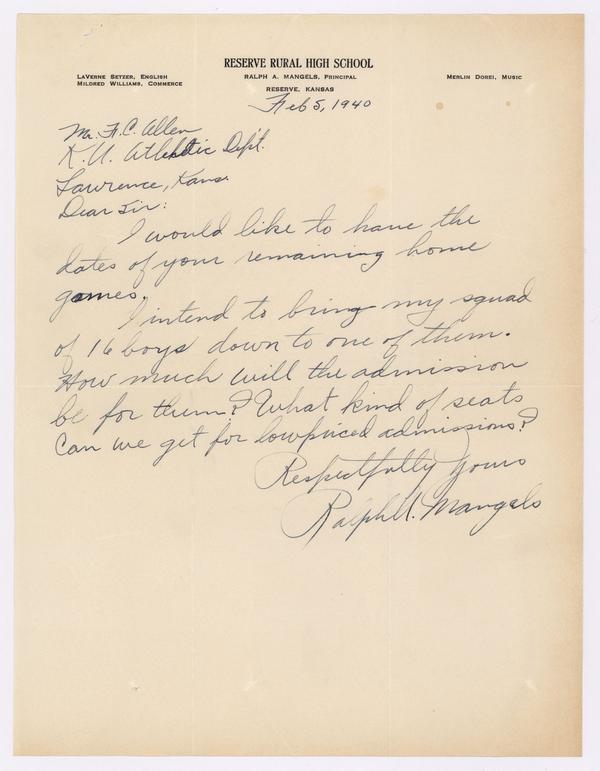 RESERVE RURAL HIGH SCHOOL
LaVerne Setzer, English
Ralph A. Mangels, Principal
Merlin Dorei, Music
Mildred Williams, Commerce
Reserve, Kansas
Feb 5, 1940
Mr. F. C. Allen
K. U. Athletic Dep't.
Lawrence, Kans.
Dear Sir:
I would like to have the
dates of your remaining home
games.
I intend to bring my squad
of 16 boys down to one of them.
How much will the admission
be for them? What kind of seats
can we get for lowpriced admissions?
Respectfully Yours
Ralph A. Mangels